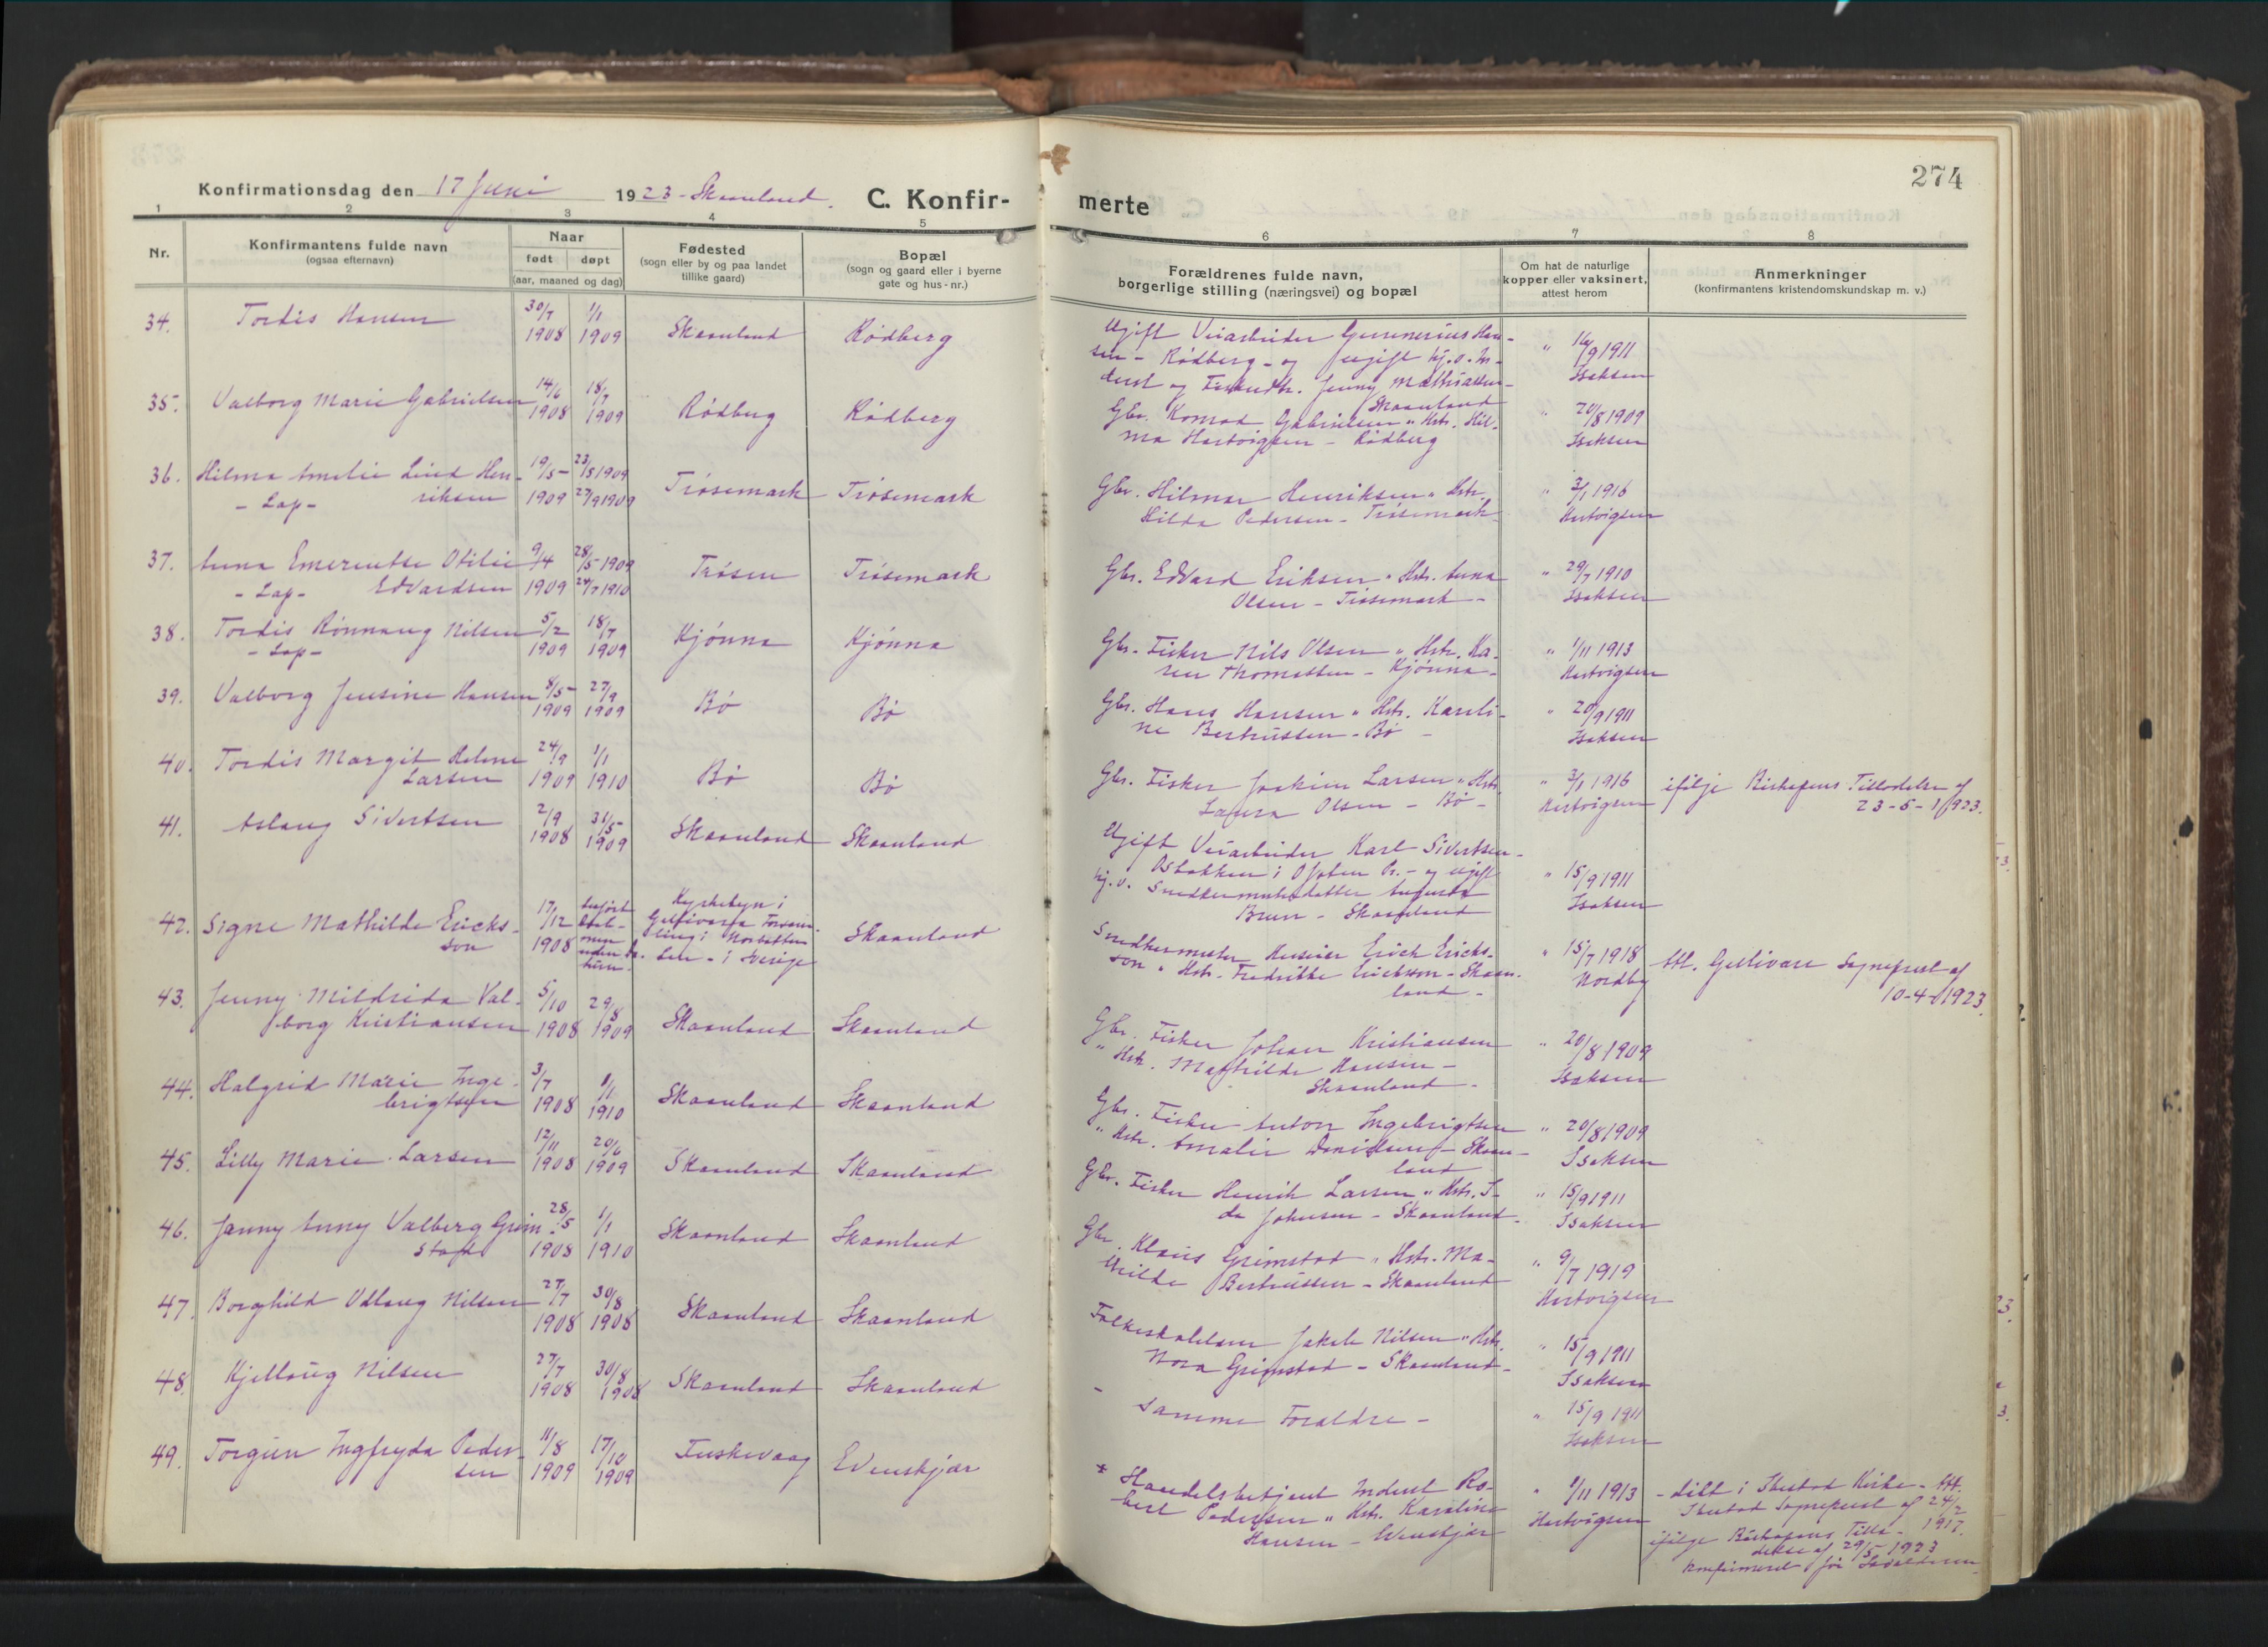 274
Konfirmationsdag den 17 Juni 1923 - Skaanland. C. Konfir-
merte
1 2 3 4 5
6 7 8
Nr.
Konfirmantens fulde navn
(ogsaa efternavn)
Naar
født døpt
(aar, maaned og dag)
Fødested
(sogn eller by og paa landet
tillike gaard)
Bopæl
(sogn og gaard eller i byerne
gate og hus-nr.)
Forældrenes fulde navn,
borgerlige stilling (næringsvei) og bopæl
Om hat de naturlige
kopper eller vaksinert,
attest herom
Anmerkninger
(konfirmantens kristendomskundskap m. v.)
34. Tordis Hansen 30/7 1908 1/1 1909 Skaanland Rødberg
Ugift Veiarbeider Gunnerius Han-
sen - Rødberg - og ugift hj.v. In-
derst og Jenny Mathiassen -
Skaanland
" 16/9 1911
Isaksen
35. Valborg Marie Gabrielsen 14/6 1908 18/7 1909 Rødberg Rødberg
Gbr. Konrad Gabrielsen " Hstr. Hil-
ma Hartvigsen - Rødberg
" 20/8 1909
Isaksen
36. Hilma Amelie Lind Hen-
- Lap - riksen
19/5 - 1909 23/5 1909 27/9 1909 Trøsemark Trøsemark
Gbr. Hilmar Henriksen " Hstr.
Hilda Pedersen - Trøsemark
" 3/1 1916
Hartvigsen
37. Anna Emerentse Otilie
- Lap - Edvardsen
9/4 1909 28/5 1909 24/7 1910 Trøsen Trøsemark
Gbr. Edvard Eriksen " Hstr. Anna
Olsen - Trøsemark -
" 29/7 1910
Isaksen
38. Tordis Rønnaug Nilsen
- Lap -
5/2 1909 18/7 1909 Kjønna Kjønna
Gbr. Fisker Nils Olsen " Hstr. Ka-
ren Thomassen - Kjønna -
" 1/11 1913
Hartvigsen
39. Valborg Jensine Hansen 8/5 - 1909 27/9 1909 Bø Bø
Gbr. Hans Hansen " Hstr. Karoli-
ne Berteussen - Bø -
" 20/9 1911
Isaksen
40. Tordis Margit Helene
Larsen
24/9 1909 1/1 1910 Bø Bø
Gbr. Fisker Joakim Larsen " Hstr.
Laura Olsen - Bø -
" 3/1 1916
Hartvigsen
ifølge Biskopens Tilladelse af
23-5-1923.
41. Aslaug Sivertsen 2/9 1908 31/5 - 1909 Skaanland Skaanland
Ugift Veiarbeider Karl Sivertsen -
i Ofoten Pr. - og ugift
hj.v. Snedkermesterdatter Augusta
Brun - Skaanland
" 15/9 1911
Isaksen
42. Signe Mathilde Ericks-
son
17/12 1908
Kyrkobyn i
Gellivara Forsam-
ling i Norbotten
Len - i Sverige
Skaanland
Snedkermester Huseier Erick Ericks-
son " Hstr. Fredrikke Ericksson - Skaan-
land -
" 15/7 1918
Nordby
Att. Gellivare Sogneprest af
10-4-1923.
43. Jenny Mildrida Val-
borg Kristiansen
5/10 1908 29/8 1909 Skaanland Skaanland
Gbr. Fisker Johan Kristiansen
" Hstr. Mathilde Hansen -
Skaanland -
" 20/8 1909
Isaksen
44. Halgrid Marie Inge-
brigtsen
3/7 1908 1/1 1910 Skaanland Skaanland
Gbr. Fisker Anton Ingebrigtsen
" Hstr. Amalie Danielsen - Skaan-
land
" 20/8 1909
Isaksen
45. Lilly Marie Larsen 12/11 1908 20/6 1909 Skaanland Skaanland
Gbr. Fisker Henrik Larsen " Hstr. I-
da Johnsen - Skaanland -
" 15/9 1911
Isaksen
46. Janny Anny Valberg Grim-
stad
28/5 1908 1/1 1910 Skaanland Skaanland
Gbr. Klaus Grimstad " Hstr. Ma-
thilde Berteussen - Skaanland
" 9/7 1919
Hartvigsen
47. Borghild Odlaug Nilsen 27/7 1908 30/8 1908 Skaanland Skaanland
Folkeskolelærer Jakob Nilsen " Hstr.
Nora Grimstad - Skaanland -
" 15/9 1911
Isaksen
48. Kjellaug Nilsen 27/7 1908 30/8 1908 Skaanland Skaanland
- Samme Foraldre -
" 15/9 1911
Isaksen
49. Torgun Ingfryda Peder-
sen
11/8 1909 17/10 1909 Fuskevaag Evenskjær
Handelsbetjent Inderst Ro-
bert Pedersen " Hstr. Karoline
Hansen - Evenskjær
" 1/11 1913
Hartvigsen
- døbt i Ibestad Kirke - Att.
Ibestad Sogneprest af 24/2
1917.
ifølge Biskopens Tilla-
delse af 29/5 1923
konfirmeret før Lavalderen -